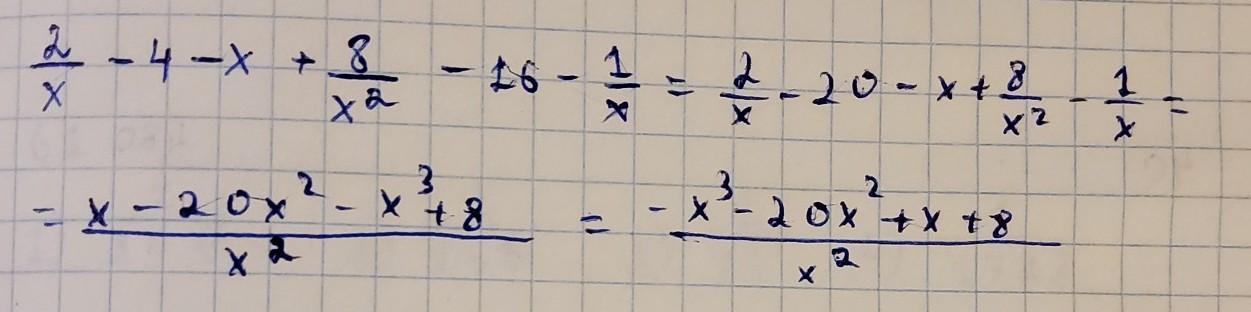 2/x - 4 - x + 8/x² - 16 - 1/x = 2/x - 20 - x + 8/x² - 1/x =
= (x - 20x² - x³ + 8)/x² = (-x³ - 20x² + x + 8)/x²